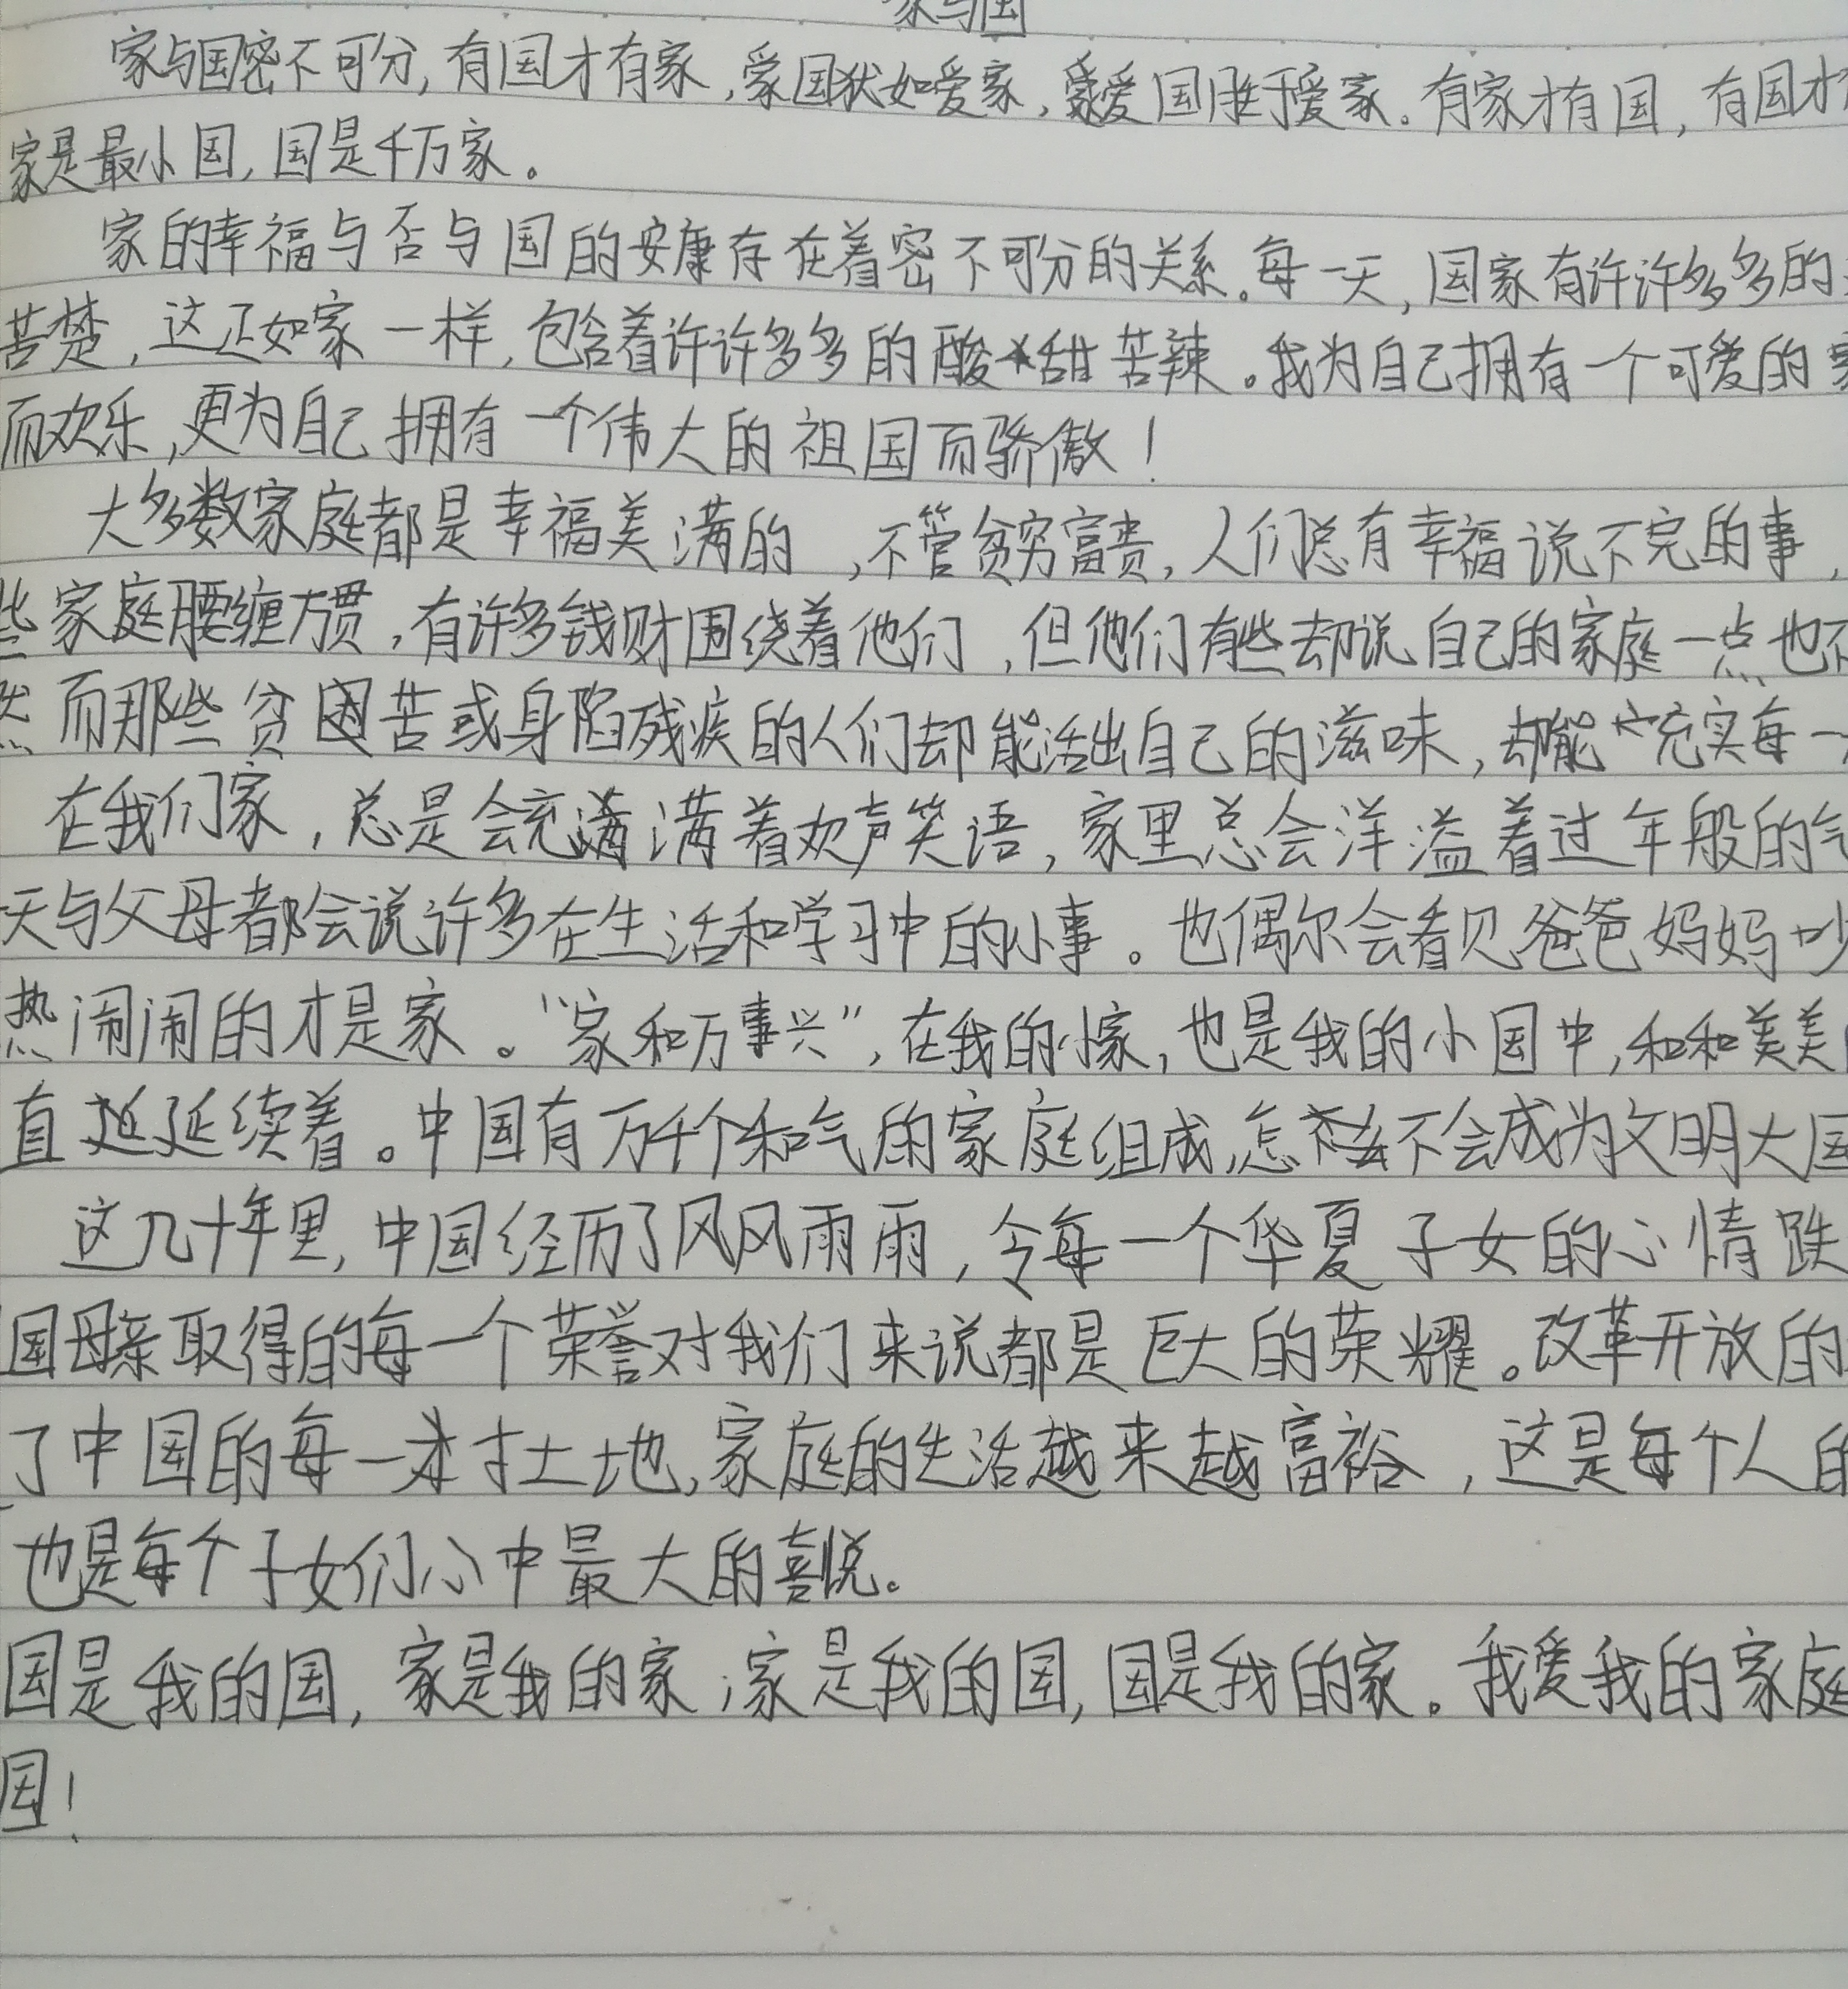 家与国
家与国密不可分,有国才有家,爱国犹如爱家,爱国胜于爱家.有家才有国,有国才
家是最小国,国是千万家。
家的幸福与否与国的安康存在着密不可分的关系。每一天,国家有许许多多的
苦楚,这正如家一样,包含着许许多多的酸甜苦辣。我为自己拥有一个可爱的
而欢乐,更为自己拥有一个伟大的祖国而骄傲!
大多数家庭都是幸福美满的,不管贫穷富贵,人们总有幸福说不完的事,
些家庭腰缠万贯,有许多钱财围绕着他们,但他们有些却说自己的家庭一点也不
然而那些贫困苦或身陷残疾的人们却能活出自己的滋味,却能充实每一
在我们家,总是会充满着欢声笑语,家里总会洋溢着过年般的气
天与父母都会说许多在生活和学习中的小事。也偶尔会看见爸爸妈妈吵
热闹闹的才是家。“家和万事兴”,在我的小家,也是我的小国中,和和美美
直延续着。中国有万千个和气的家庭组成,怎不会成为文明大国
这几十年里,中国经历了风风雨雨,令每一个华夏子女的心情跌
国母亲取得的每一个荣誉对我们来说都是巨大的荣耀。改革开放的
了中国的每一寸土地,家庭的生活越来越富裕,这是每个人的
也是每个子女们心中最大的喜悦。
国是我的国,家是我的家;家是我的国,国是我的家。我爱我的家庭
国!